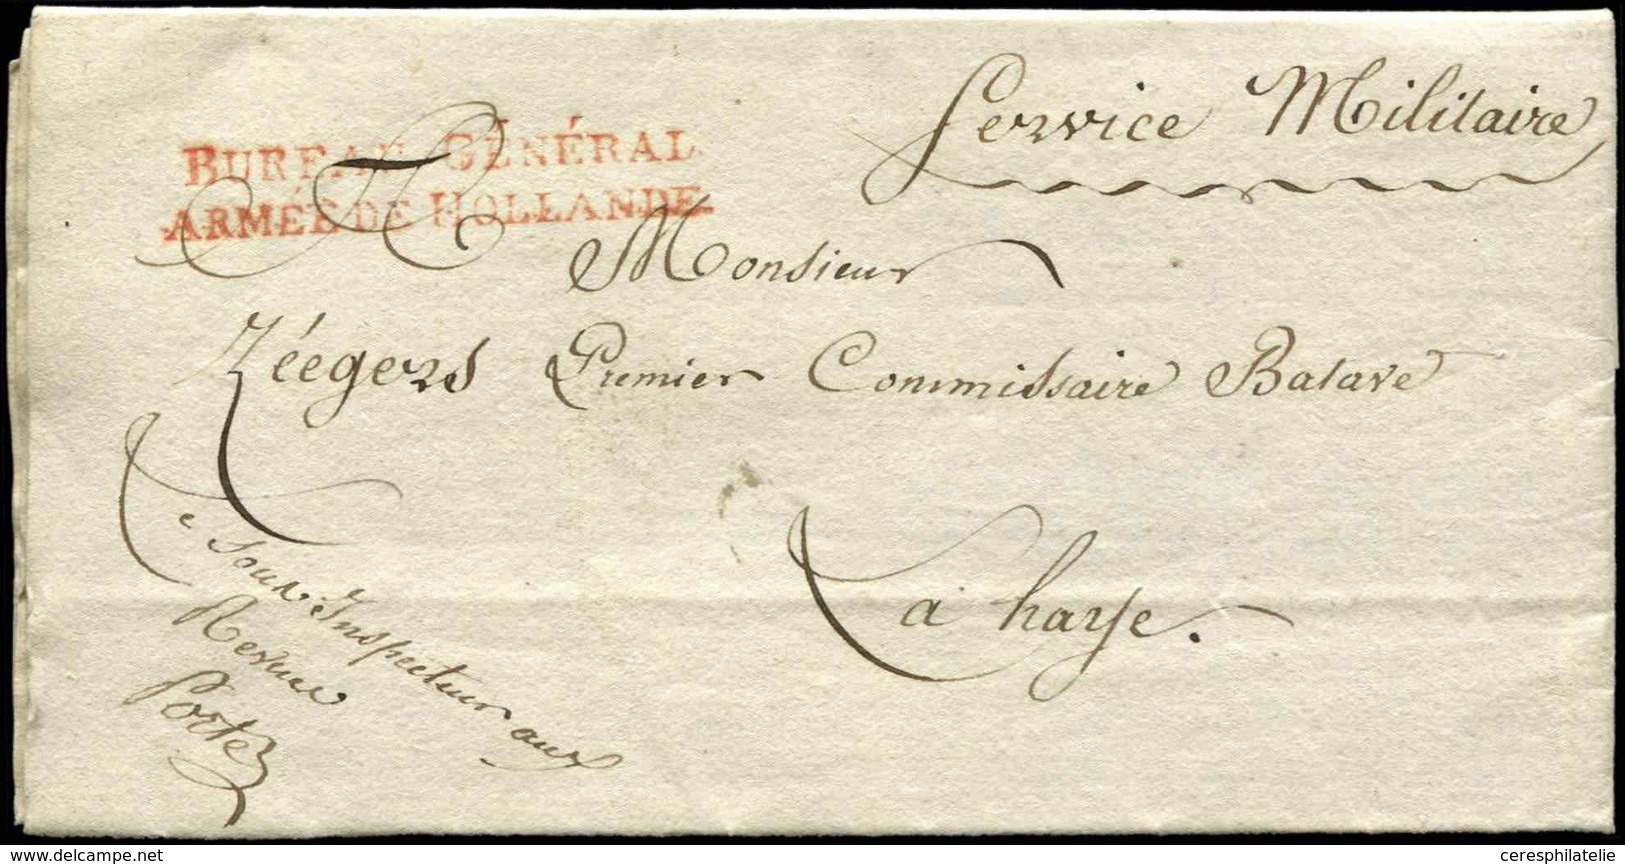 Service Militaire
BUREAU GÉNÉRAL
ARMÉE DE HOLLANDE.
Monsieur
Zéegers Premier Commissaire Batave
a haye.
Le sous Inspecteur aux
Revues
delcampe.net
ceresphilatelie